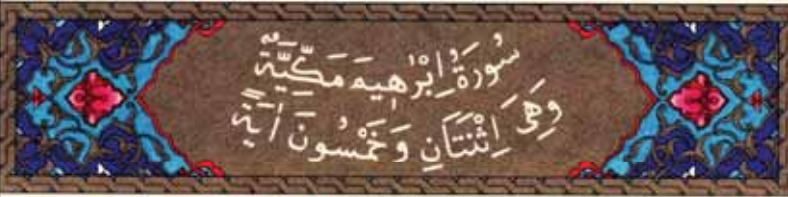 سُورَةُ اِبْرٰهِيمَ مَكِّيَّةٌ
وَهِىَ اِثْنَتَانِ وَخَمْسُونَ اٰيَةً